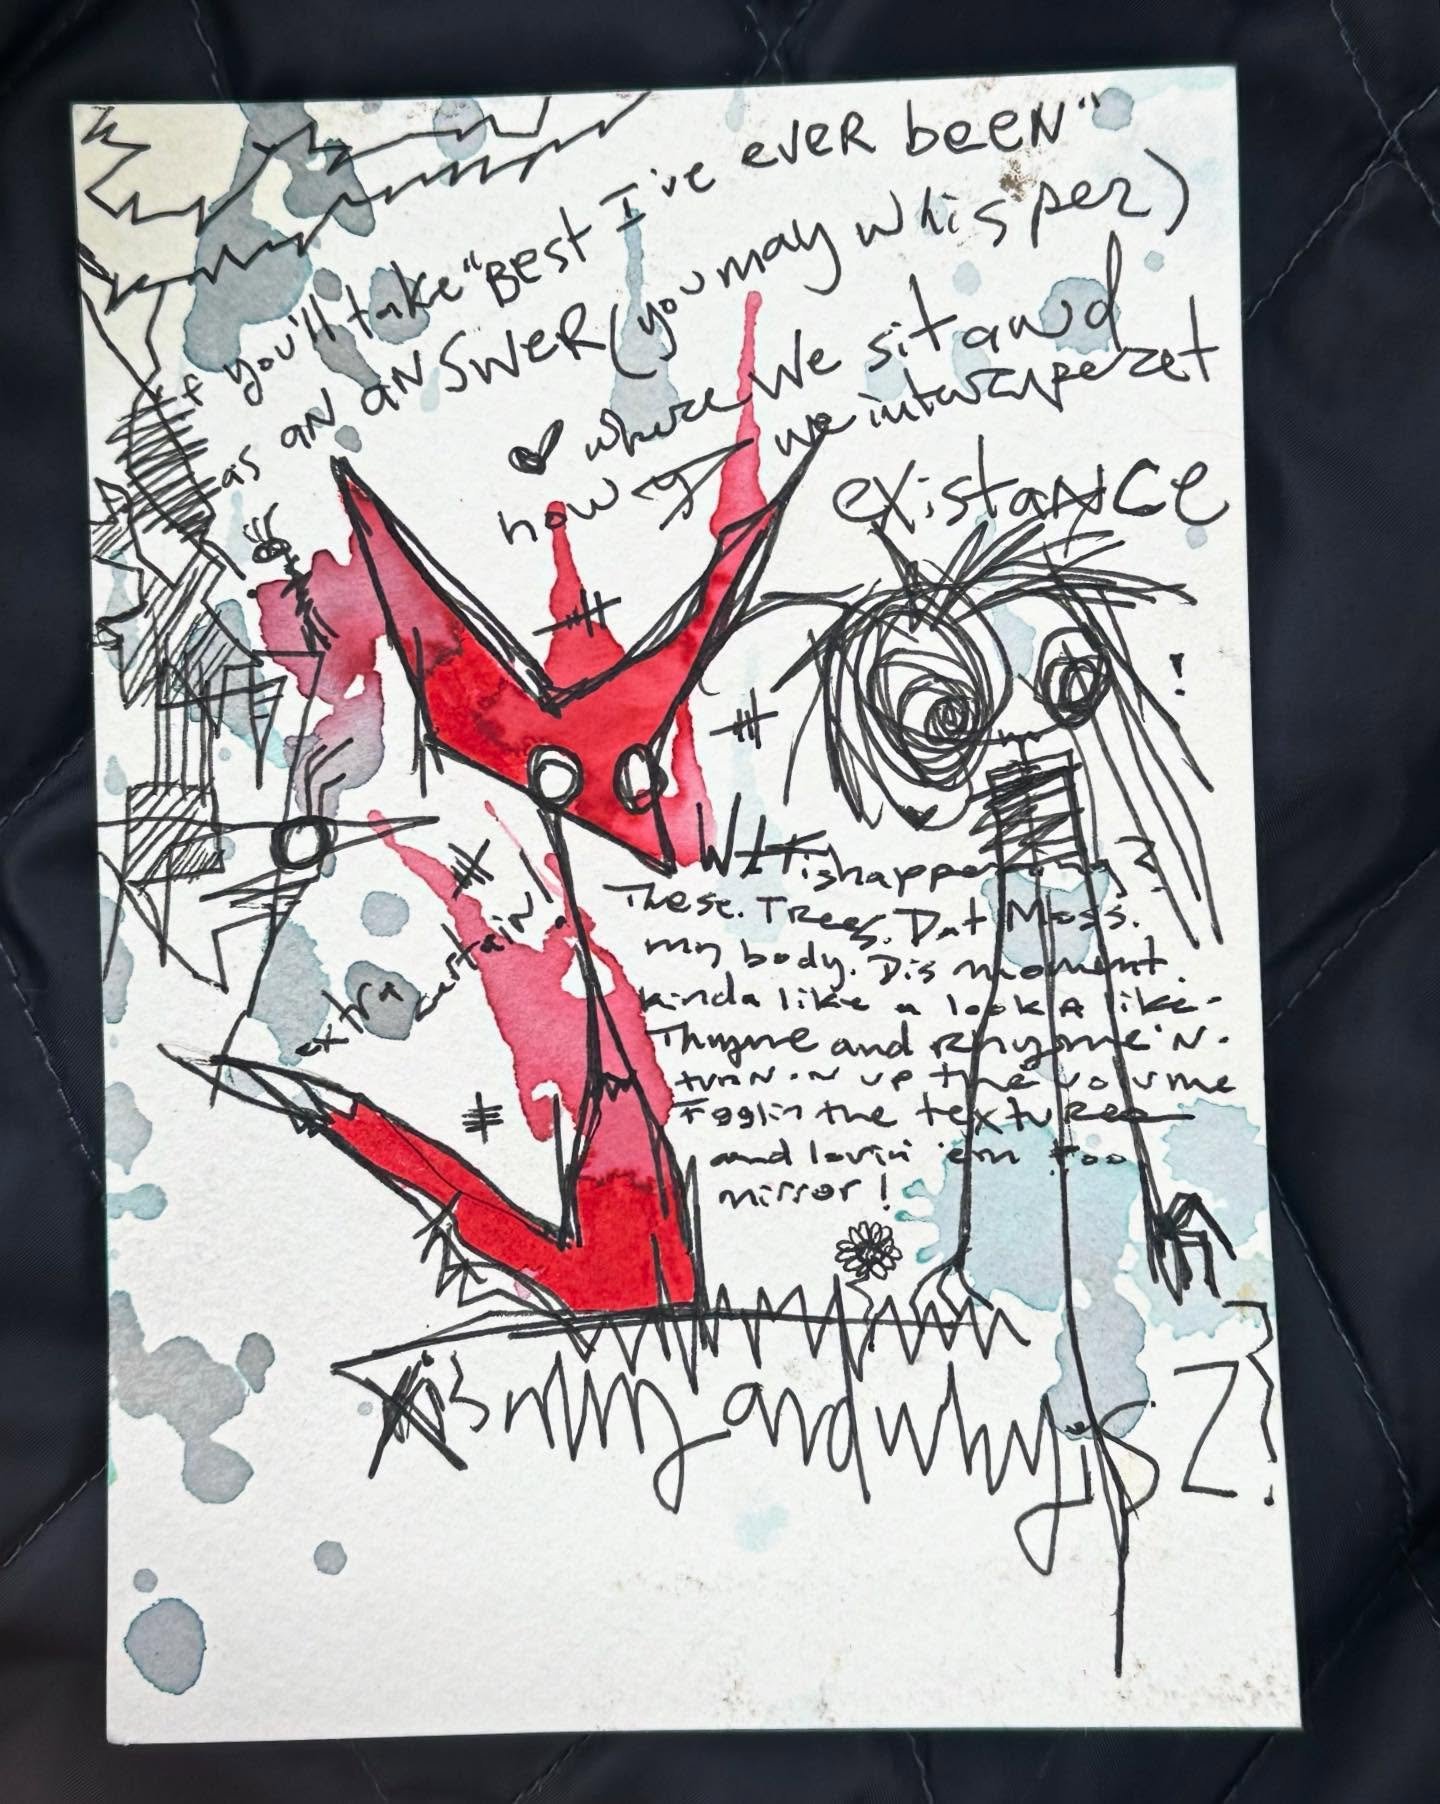 if you'll take "BEST I've eveR beeN"
as aN aNSWeR (you may whisper)
♥ where We sit and
how we interperet
existaNCe
WTF is happening?
These. Trees. Dat Moss.
my body. Dis moment.
kinda like a look A like-
Thyme and Rhyme'N.
turN.N up the volume
Fgglin the textures
and lovin' 'em too,
mirror!
extra certaiN.
is my and why is Z?
!